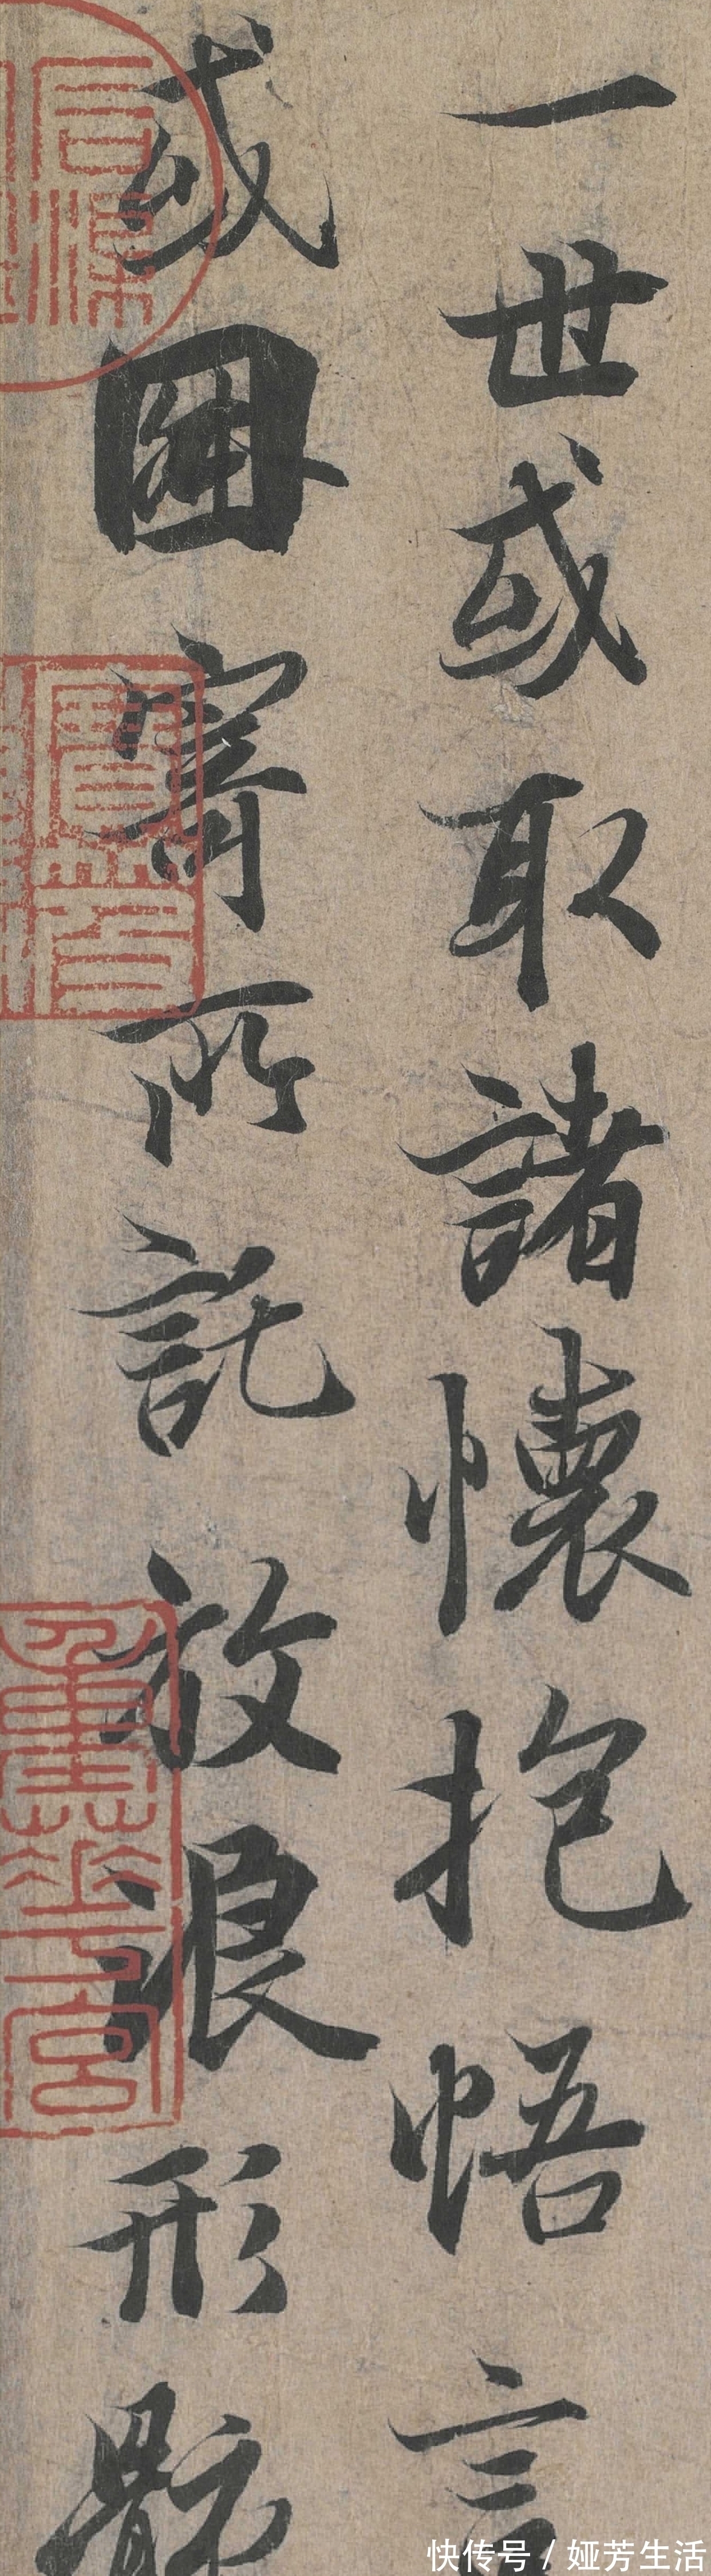 一世或取諸懷抱悟言
或因寄所託放浪形骸
重華宮
快传号 / 娅芳生活